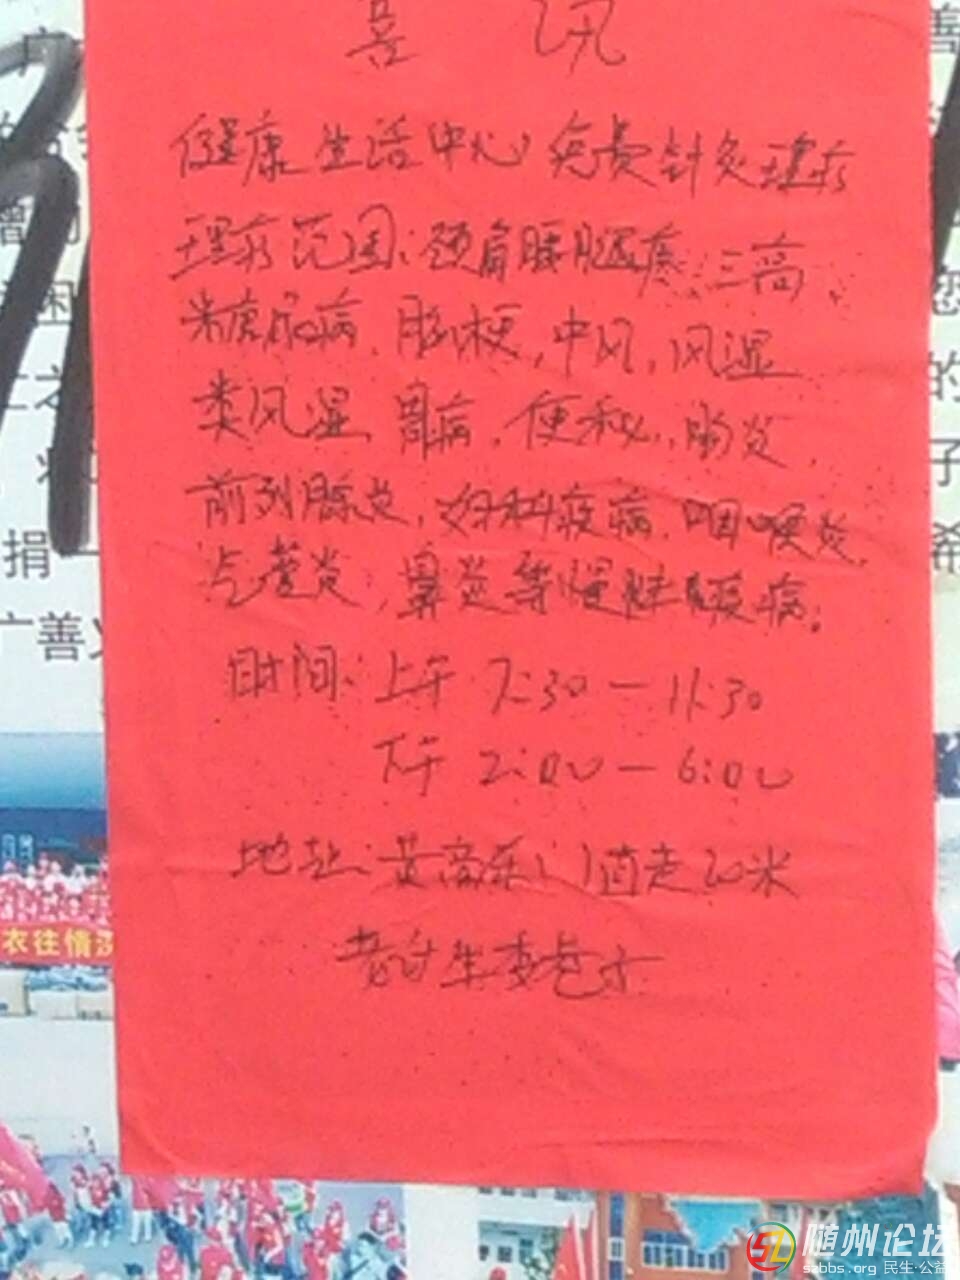 喜讯
健康生活中心免费针灸理疗
理疗范围:颈肩腰腿疼、三高、
糖尿病、脑梗,中风,风湿
类风湿、胃病、便秘,肠炎,
前列腺炎,妇科疾病、咽喉炎、
气管炎,鼻炎等慢性疾病。
时间:上午 7:30—11:30
下午 2:00—6:00
地址:黄高东门直走20米
老计生委巷子
衣往情深
捐一
广善义
的
子
希
随州论坛
szbbs.org 民生·公益